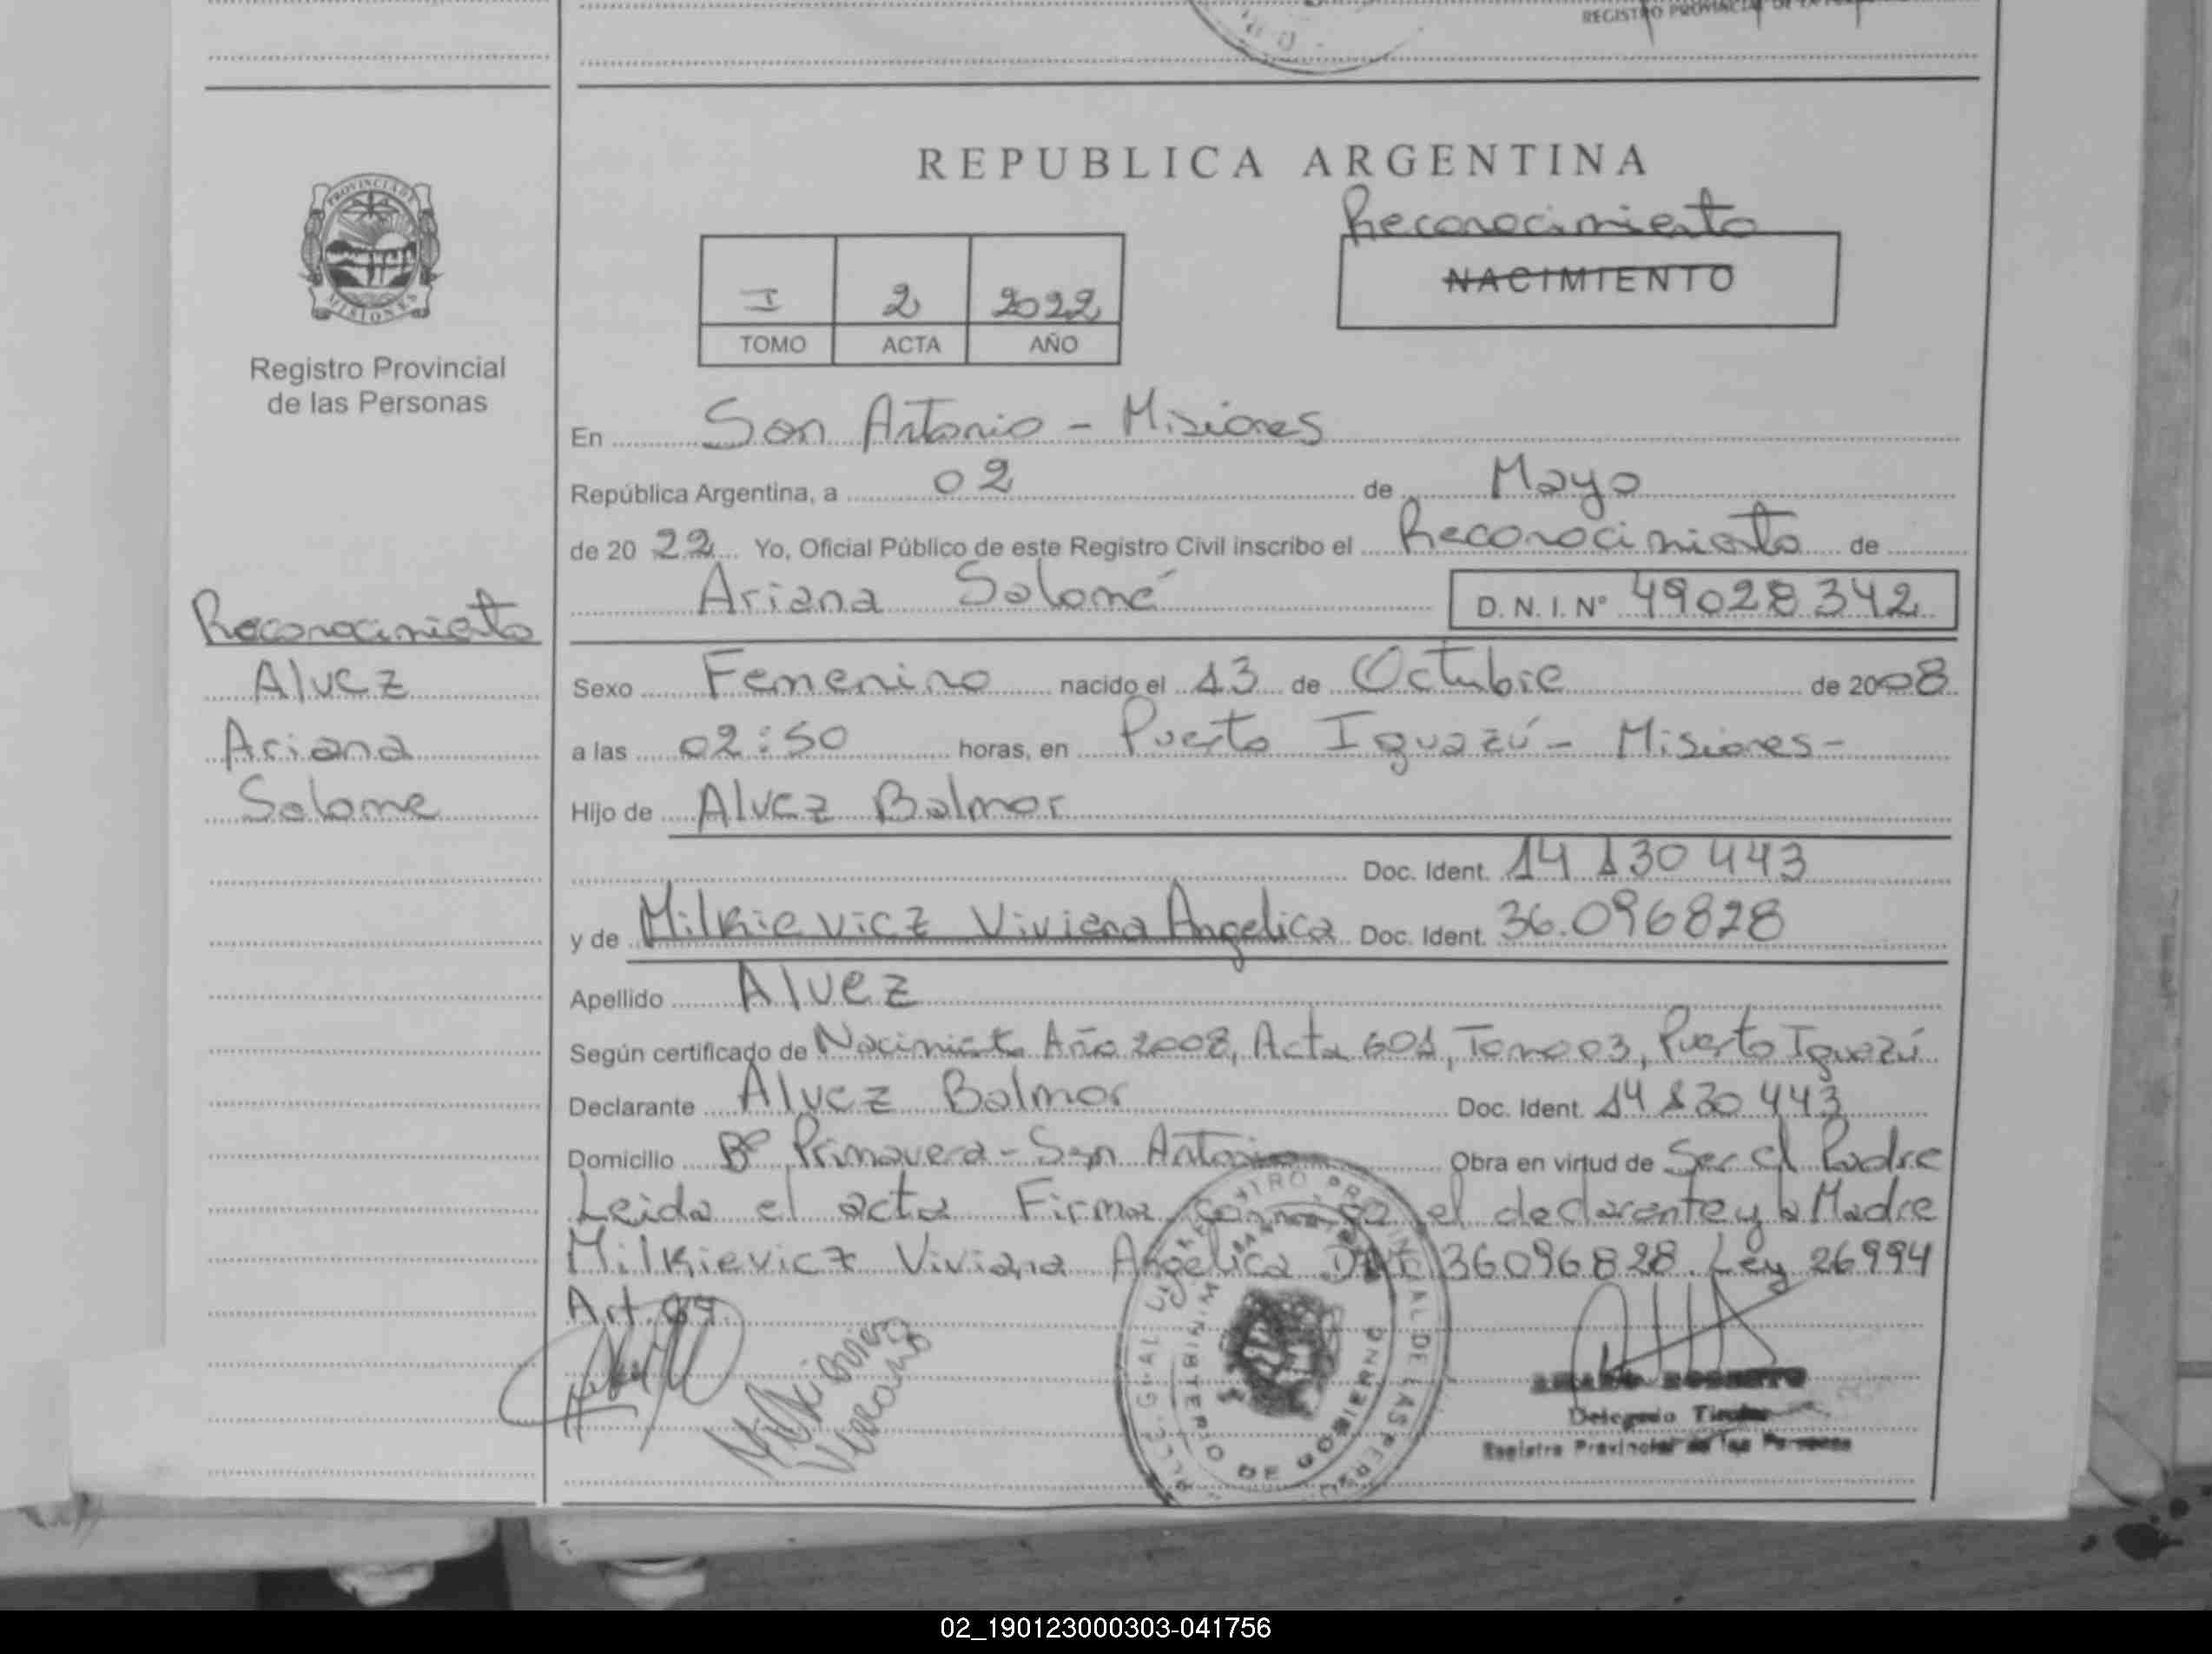 REGISTRO PROVINCIAL DE
REPUBLICA ARGENTINA
Reconocimiento
NACIMIENTO
I 2 2022
TOMO ACTA AÑO
PROVINCIA DE
MISIONES
Registro Provincial
de las Personas
En San Antonio - Misiones
República Argentina, a 02 de Mayo
de 20 22 Yo, Oficial Público de este Registro Civil inscribo el Reconocimiento de
Ariana Salomé D. N. I. Nº 49028342
Reconocimiento
Alvez
Ariana
Salome
Sexo Femenino nacido el 13 de Octubre de 2008
a las 02:50 horas, en Puerto Iguazú - Misiones -
Hijo de Alvez Balmor
Doc. Ident. 14 830 443
y de Milkievicz Viviana Angelica Doc. Ident. 36.096828
Apellido Alvez
Según certificado de Nacimiento Año 2008, Acta 601, Tomo 03, Puerto Iguazú
Declarante Alvez Balmor Doc. Ident. 14 830 443
Domicilio Bº Primavera - San Antonio Obra en virtud de Ser el Padre
Leida el acta Firma conmigo el declarante y la Madre
Milkievicz Viviana Angelica DNI 36096828. Ley 26994
Art.
MINISTERIO DE GOBIERNO
Delegado Titular
Registro Provincial de las Personas
02_190123000303-041756